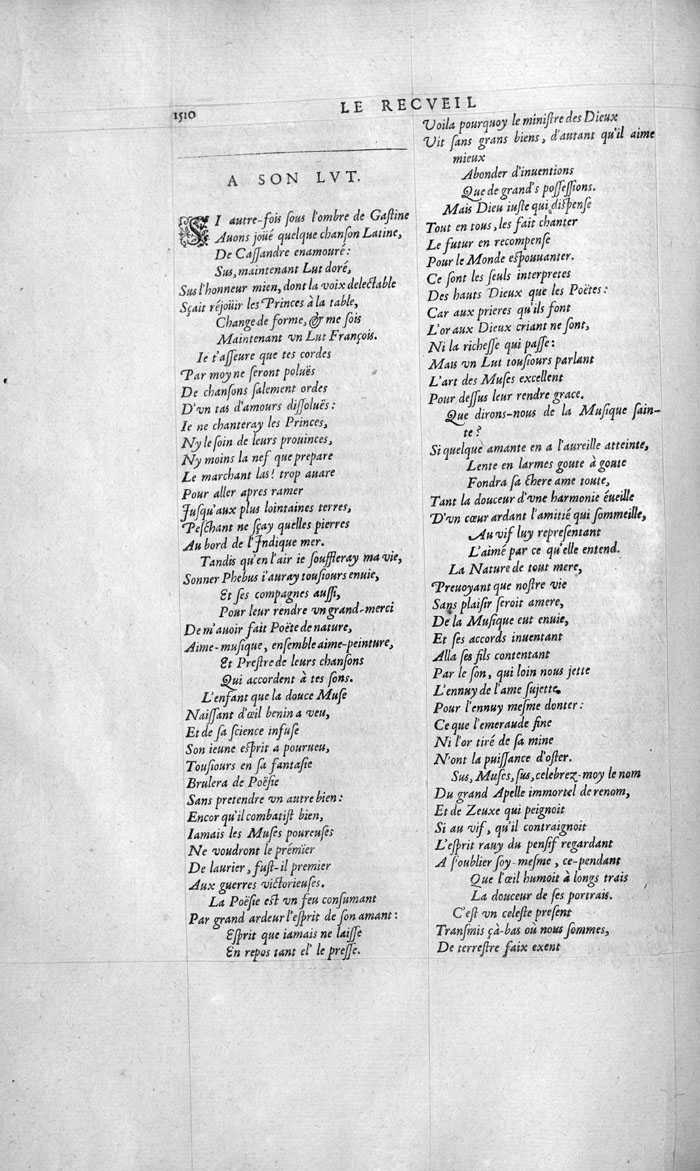 1510
LE RECVEIL
A SON LVT.
SI autre-fois sous l'ombre de Gastine
Auons joüé quelque chanson Latine,
De Cassandre enamouré:
Sus, maintenant Lut doré,
Sus l'honneur mien, dont la voix delectable
Sçait réjoüir les Princes à la table,
Change de forme, & me sois
Maintenant vn Lut François.
Ie t'asseure que tes cordes
Par moy ne seront poluës
De chansons salement ordes
D'vn tas d'amours dissoluës:
Ie ne chanteray les Princes,
Ny le soin de leurs prouinces,
Ny moins la nef que prepare
Le marchant las! trop auare
Pour aller apres ramer
Jusqu'aux plus lointaines terres,
Peschant ne sçay quelles pierres
Au bord de l'Indique mer.
Tandis qu'en l'air ie souffleray ma vie,
Sonner Phebus i'auray tousiours enuie,
Et ses compagnes aussi,
Pour leur rendre vn grand-merci
De m'auoir fait Poëte de nature,
Aime-musique, ensemble aime-peinture,
Et Prestre de leurs chansons
Qui accordent à tes sons.
L'enfant que la douce Muse
Naissant d'œil benin a veu,
Et de sa science infuse
Son ieune esprit a pourueu,
Tousiours en sa fantasie
Brulera de Poësie
Sans pretendre vn autre bien:
Encor qu'il combatist bien,
Iamais les Muses poureuses
Ne voudront le prémier
De laurier, fust-il premier
Aux guerres victorieuses.
La Poësie est vn feu consumant
Par grand ardeur l'esprit de son amant:
Esprit que iamais ne laisse
En repos tant el' le presse.
Voila pourquoy le ministre des Dieux
Vit sans grans biens, d'autant qu'il aime
mieux
Abonder d'inuentions
Que de grand's possessions.
Mais Dieu iuste qui dispense
Tout en tous, les fait chanter
Le futur en recompense
Pour le Monde espouuanter.
Ce sont les seuls interpretes
Des hauts Dieux que les Poëtes:
Car aux prieres qu'ils font
L'or aux Dieux criant ne sont,
Ni la richesse qui passe:
Mais vn Lut tousiours parlant
L'art des Muses excellent
Pour dessus leur rendre grace.
Que dirons-nous de la Musique sain-
te?
Si quelque amante en a l'aureille atteinte,
Lente en larmes goute à goute
Fondra sa chere ame toute,
Tant la douceur d'vne harmonie éueille
D'vn cœur ardant l'amitié qui sommeille,
Au vif luy representant
L'aimé par ce qu'elle entend.
La Nature de tout mere,
Preuoyant que nostre vie
Sans plaisir seroit amere,
De la Musique eut enuie,
Et ses accords inuentant
Alla ses fils contentant
Par le son, qui loin nous jette
L'ennuy de l'ame sujette,
Pour l'ennuy mesme donter:
Ce que l'emeraude fine
Ni l'or tiré de sa mine
N'ont la puissance d'oster.
Sus, Muses, sus, celebrez-moy le nom
Du grand Apelle immortel de renom,
Et de Zeuxe qui peignoit
Si au vif, qu'il contraignoit
L'esprit rauy du pensif regardant
A s'oublier soy-mesme, ce-pendant
Que l'œil humoit à longs trais
La douceur de ses portrais.
C'est vn celeste present
Transmis çà-bas où nous sommes,
De terrestre faix exent